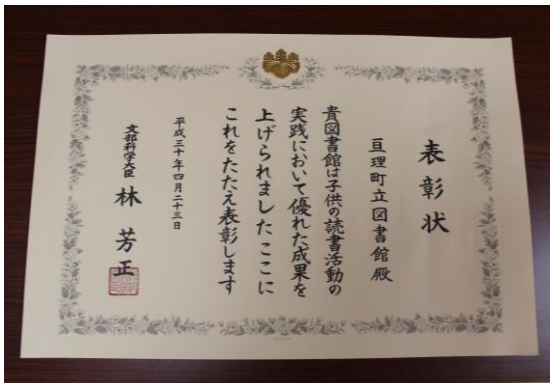 表彰状
亘理町立図書館殿
貴図書館は子供の読書活動の
実践において優れた成果を
上げられましたここに
これをたたえ表彰します
平成三十年四月二十三日
文部科学大臣 林芳正